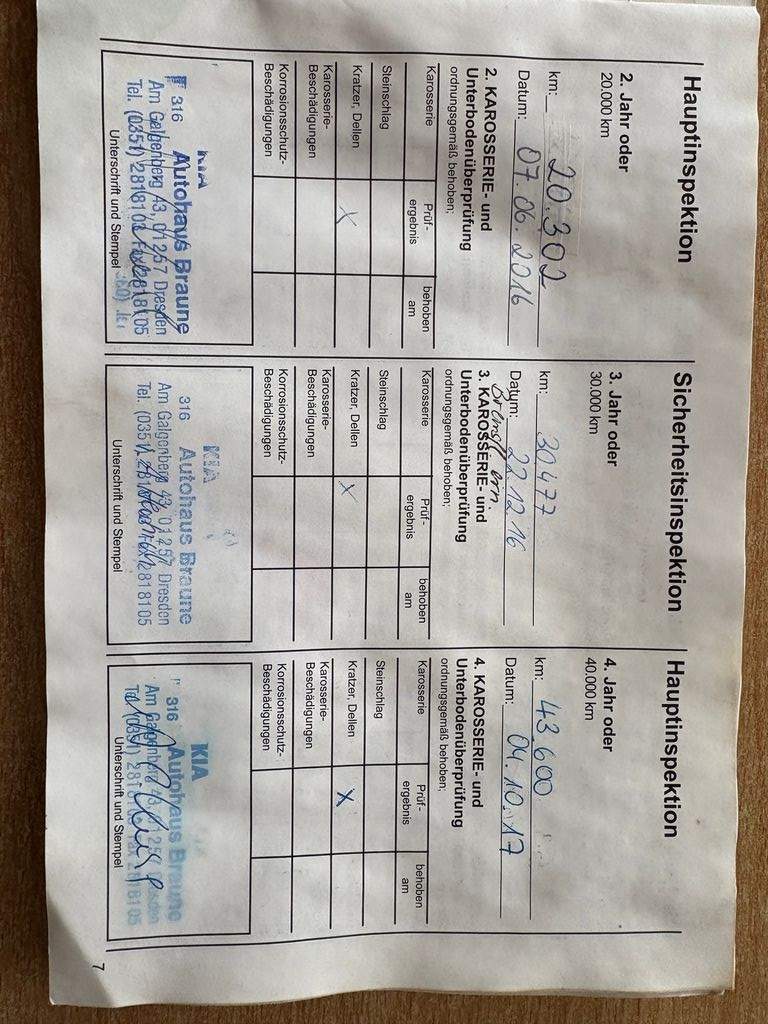 Hauptinspektion
2. Jahr oder
20.000 km
km: 20.302
Datum: 07.06.2016
2. KAROSSERIE- und
Unterbodenüberprüfung
ordnungsgemäß behoben;
Karosserie
Prüf-
ergebnis
behoben
am
Steinschlag
Kratzer, Dellen
X
Karosserie-
Beschädigungen
Korrosionsschutz-
Beschädigungen
KIA
316 Autohaus Braune
Am Galgenberg 43, 01257 Dresden
Tel. (0351) 2818105
Unterschrift und Stempel
Sicherheitsinspektion
3. Jahr oder
30.000 km
km: 30477
Datum: 22.12.16
3. KAROSSERIE- und
Unterbodenüberprüfung
ordnungsgemäß behoben;
Karosserie
Prüf-
ergebnis
behoben
am
Steinschlag
Kratzer, Dellen
X
Karosserie-
Beschädigungen
Korrosionsschutz-
Beschädigungen
KIA
316 Autohaus Braune
Am Galgenberg 43, 01257 Dresden
Tel. (0351) 2818105
Unterschrift und Stempel
Hauptinspektion
4. Jahr oder
40.000 km
km: 43.600
Datum: 04.10.17
4. KAROSSERIE- und
Unterbodenüberprüfung
ordnungsgemäß behoben;
Karosserie
Prüf-
ergebnis
behoben
am
Steinschlag
Kratzer, Dellen
X
Karosserie-
Beschädigungen
Korrosionsschutz-
Beschädigungen
KIA
316 Autohaus Braune
Am Galgenberg 43, 01257 Dresden
Unterschrift und Stempel
7